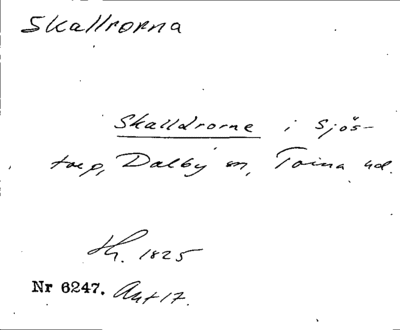 Skallrorna
Skalldrorne i Sjös-
torp, Dalby sn, Torna hd.
Lh. 1825
Nr 6247. Avt 17.